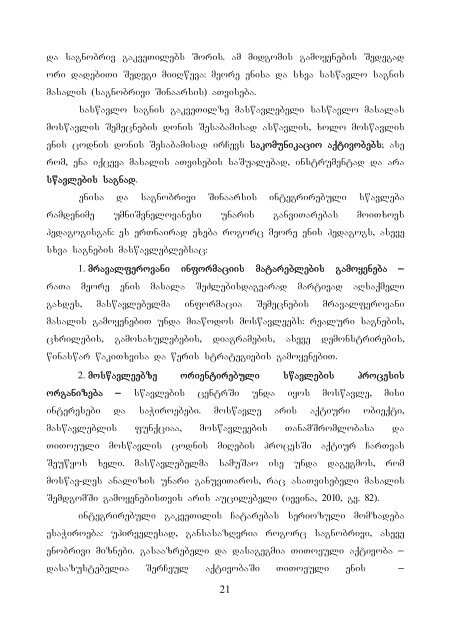 და საგნობრივ გაკვეთილებს შორის. ამ მიდგომის გამოყენების შედეგად
ორი დადებითი შედეგი მიიღწევა: მეორე ენისა და სხვა სასწავლო საგნის
მასალის (საგნობრივი შინაარსის) ათვისება.
სასწავლო საგნის გაკვეთილზე მასწავლებელი სასწავლო მასალას
მოსწავლის შემეცნების დონის შესაბამისად ასწავლის, ხოლო მოსწავლის
ენის ცოდნის დონის შესაბამისად ირჩევს საკომუნიკაციო აქტივობებს; ასე
რომ, ენა იქცევა მასალის ათვისების საშუალებად, ინსტრუმენტად და არა
სწავლების საგნად.
ენისა და საგნობრივი შინაარსის ინტეგრირებული სწავლება
რამდენიმე უმნიშვნელოვანესი უნარის განვითარებას მოითხოვს
პედაგოგისგან: ეს ერთნაირად ეხება როგორც მეორე ენის პედაგოგს, ასევე
სხვა საგნების მასწავლებლებსაც:
1. მრავალფეროვანი ინფორმაციის მატარებლების გამოყენება –
რათა მეორე ენის მასალა შეძლებისდაგვარად მარტივად აღსაქმელი
გახდეს, მასწავლებელმა ინფორმაცია შემეცნების მრავალფეროვანი
მასალის გამოყენებით უნდა მიაწოდოს მოსწავლეებს: რეალური საგნების,
ცხრილების, გამოსახულებების, დიაგრამების, ასევე დემონსტრირების,
წინასწარ წაკითხვისა და წერის სტრატეგიების გამოყენებით.
2. მოსწავლეებზე ორიენტირებული სწავლების პროცესის
ორგანიზება – სწავლების ცენტრში უნდა იყოს მოსწავლე, მისი
ინტერესები და საჭიროებები. მოსწავლე არის აქტიური ობიექტი,
მასწავლებლის ფუნქციაა, მოსწავლეების თანამშრომლობასა და
თითოეული მოსწავლის ცოდნის მიღების პროცესში აქტიურ ჩართვას
შეუწყოს ხელი. მასწავლებელმა სამუშაო ისე უნდა დაგეგმოს, რომ
მოსწავ-ლეს ანალიზის უნარი განუვითაროს, რაც ასათვისებელი მასალის
შემდგომში გამოყენებისთვის არის აუცილებელი (იევინა, 2010, გვ. 82).
ინტეგრირებული გაკვეთილის ჩატარებას სერიოზული მომზადება
ესაჭიროება: უპირველესად, განსასაზღვრია როგორც საგნობრივი, ასევე
ენობრივი მიზნები. გასააზრებელი და დასაგეგმია თითოეული აქტივობა –
დასაზუსტებელია შერჩეულ აქტივობაში თითოეული ენის –
21